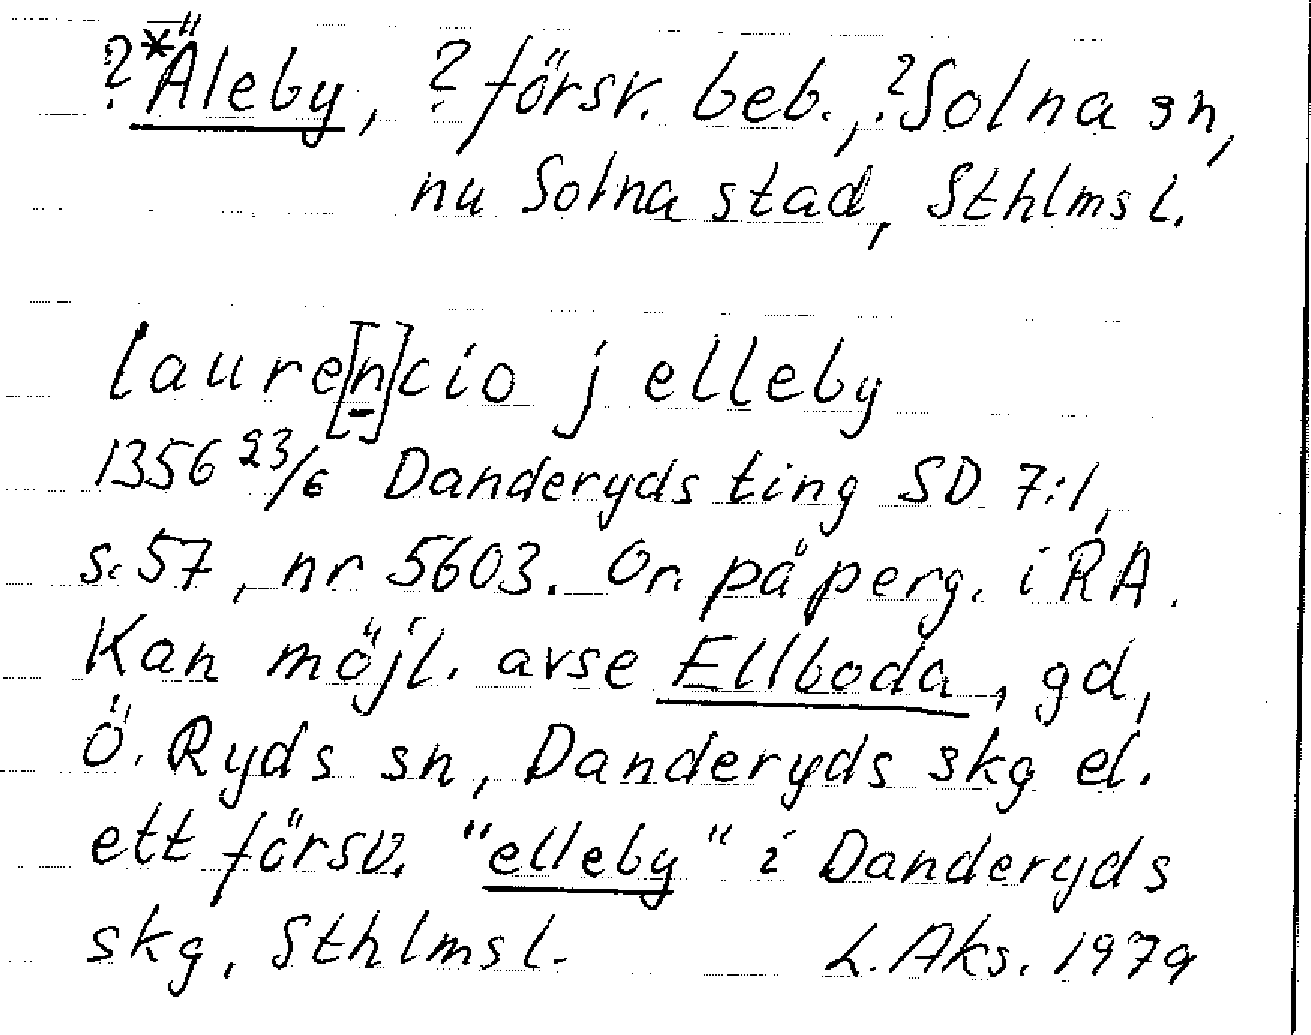 ?*Äleby, ?försv. beb., ?Solna sn,
nu Solna stad, Sthlmsl.
laure[n]cio j elleby
1356 23/6 Danderyds ting SD 7:1,
s. 57, nr 5603. Or. på perg. i RA.
Kan möjl. avse Ellboda, gd,
Ö. Ryds sn, Danderyds skg el.
ett försv. "elleby" i Danderyds
skg, Sthlmsl. L. Aks. 1979